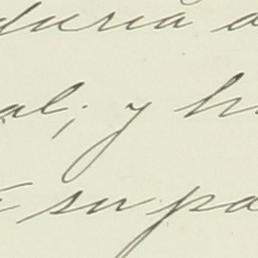 duria a
al; y h
su pa